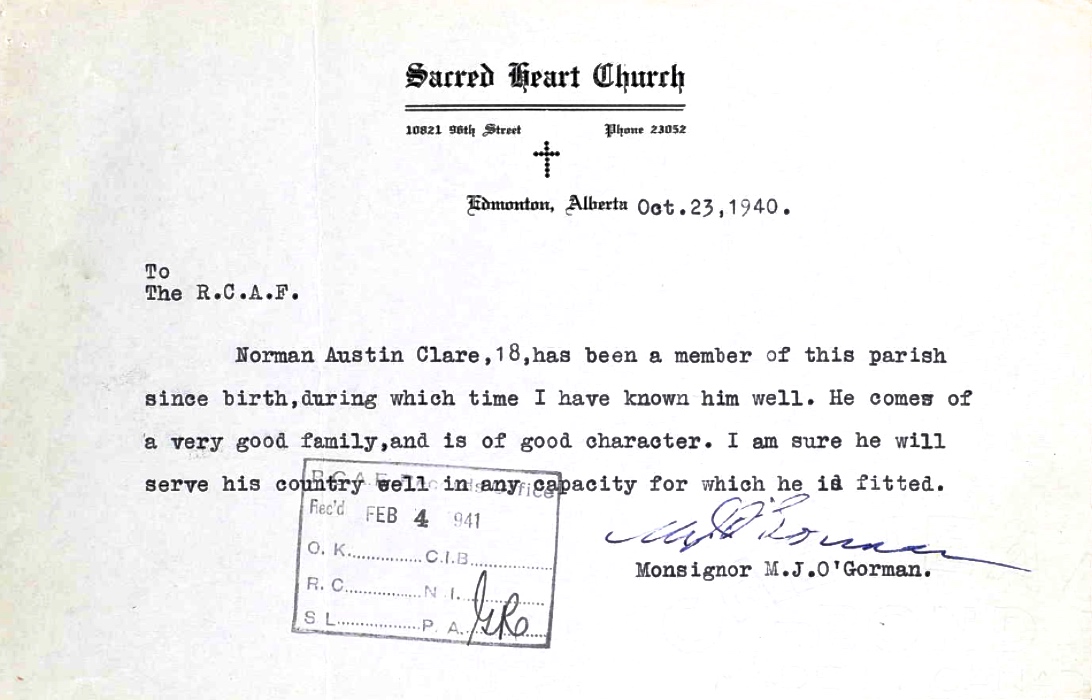 Sacred Heart Church
10821 96th Street Phone 23052
Edmonton, Alberta Oct.23,1940.
To
The R.C.A.F.
Norman Austin Clare,18,has been a member of this parish
since birth,during which time I have known him well. He comes of
a very good family,and is of good character. I am sure he will
serve his country well in any capacity for which he is fitted.
R.C.A.F. Records Office
Rec'd FEB 4 941
O. K...............C.I.B...............
R. C...............N. I...............
S L...............P. A...............
M J O'Gorman
Monsignor M.J.O'Gorman.